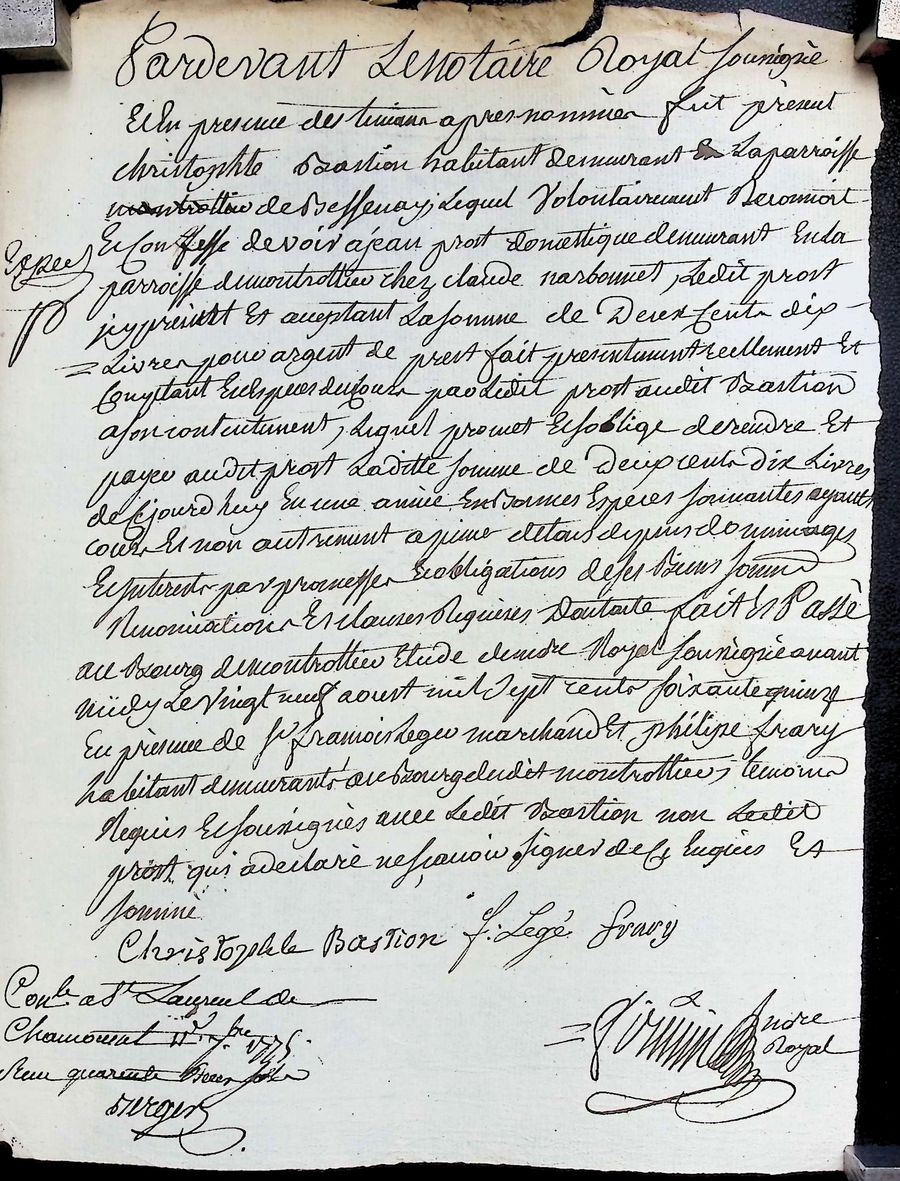 Pardevant Le notaire Royal soussigné
Et En presence des temoins apres nommés fut présent
christophle Bastion habitant demeurant En La parroisse
de Bessenay, Lequel Volontairement Reconnoit
Et Confesse devoir a jean prost domestique demeurant En La
parroisse de montrottier chez claude narbonnet, Ledit prost
icy présent Et acceptant La somme de Deux Cents dix
Livres pour argent de prest fait presentement reellement Et
Comptant En Especes du Cours par Ledit prost audit Bastion
a son contentement, Lequel promet Et soblige de rendre Et
payer audit prost Laditte somme de Deux cents Dix Livres
de Cejourdhuy En une année En Bonnes Especes sonnantes ayant
cours Et non autrement a peine de tous depens dommages
Et interets par promesses Et obligations de ses Biens soumis
Renonciations Et clauses Requises Dont acte fait Et Passé
au Bourg de montrottier Etude du nore Royal soussigné avant
midy Le Vingt neuf aoust mil Sept cents soixante quinze
En présence de sr francois Leger marchand Et philipe frary
habitant demeurants au Bourg dudit montrottier, temoins
Requis Et soussignés avec Ledit Bastion non Ledit
prost qui a declaré ne sçavoir signer de Ce Enquis Et
sommé
Christophle Bastion f: Legé frary
Conle a St Laurent de
Chamousset 11 7bre 1775.
Reçu quarente Deux sols
Berger
nore
Royal